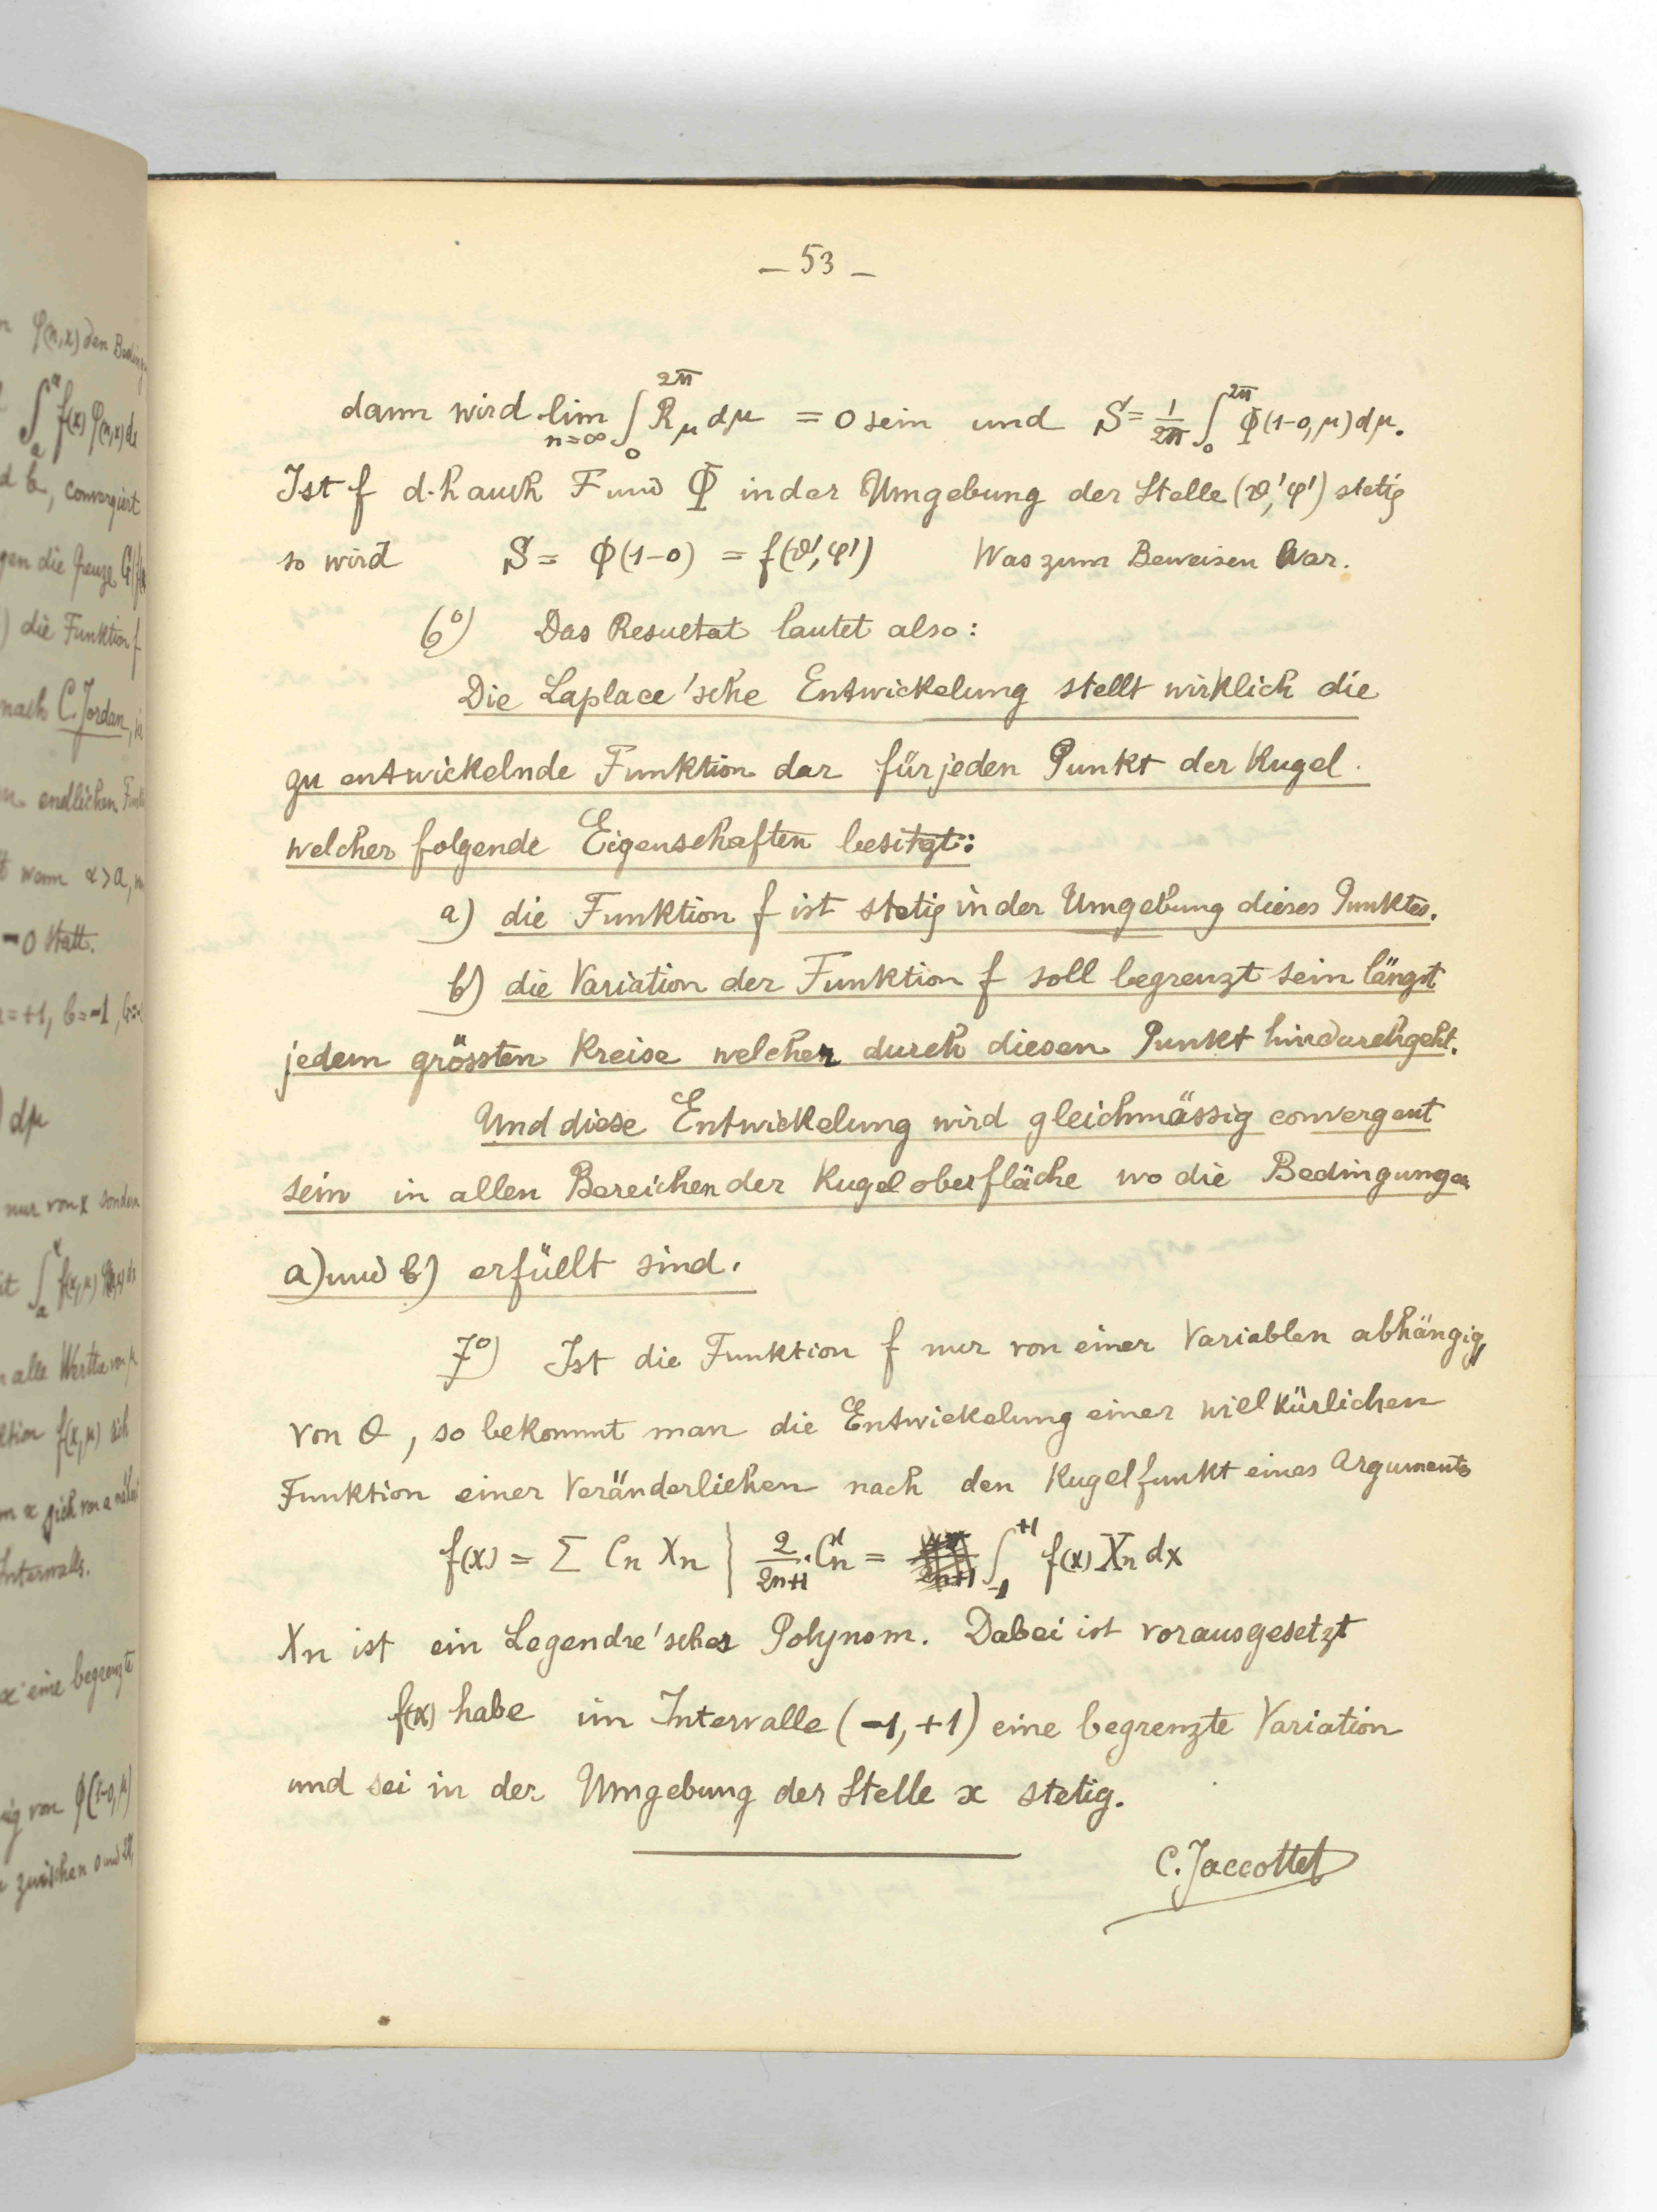 – 53 –
dann wird lim n=∞ ∫₀^{2π} R_μ dμ = 0 sein und S = 1/2π ∫₀^{2π} Φ(1-0, μ) dμ.
Ist f d.h auch F und Φ in der Umgebung der Stelle (ϑ', φ') stetig
so wird S = Φ(1-0) = f(ϑ', φ') Was zum Beweisen War.
6°) Das Resultat lautet also:
Die Laplace'sche Entwickelung stellt wirklich die
zu entwickelnde Funktion dar für jeden Punkt der Kugel.
welcher folgende Eigenschaften besitzt:
a) die Funktion f ist stetig in der Umgebung dieses Punktes.
b) die Variation der Funktion f soll begrenzt sein längst
jedem grössten Kreise welcher durch diesen Punkt hindurchgeht.
Und diese Entwickelung wird gleichmässig convergent
sein in allen Bereichen der Kugeloberfläche wo die Bedingungen
a) und b) erfüllt sind.
7°) Ist die Funktion f nur von einer Variablen abhängig,
von θ, so bekommt man die Entwickelung einer willkürlichen
Funktion einer Veränderlichen nach den Kugelfunkt eines Arguments
f(x) = Σ Cn Xn | 2/2n+1 · Cn = ∫₋₁^{+1} f(x) Xn dx
Xn ist ein Legendre'sches Polynom. Dabei ist vorausgesetzt
f(x) habe im Intervalle (-1, +1) eine begrenzte Variation
und sei in der Umgebung der Stelle x stetig.
C. Jaccottet